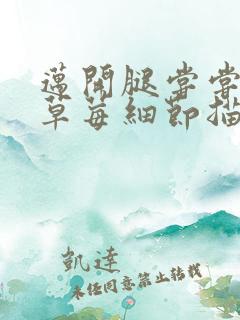 邁開腿嘗嘗
草莓細節描
凱達
未经同意禁止转载